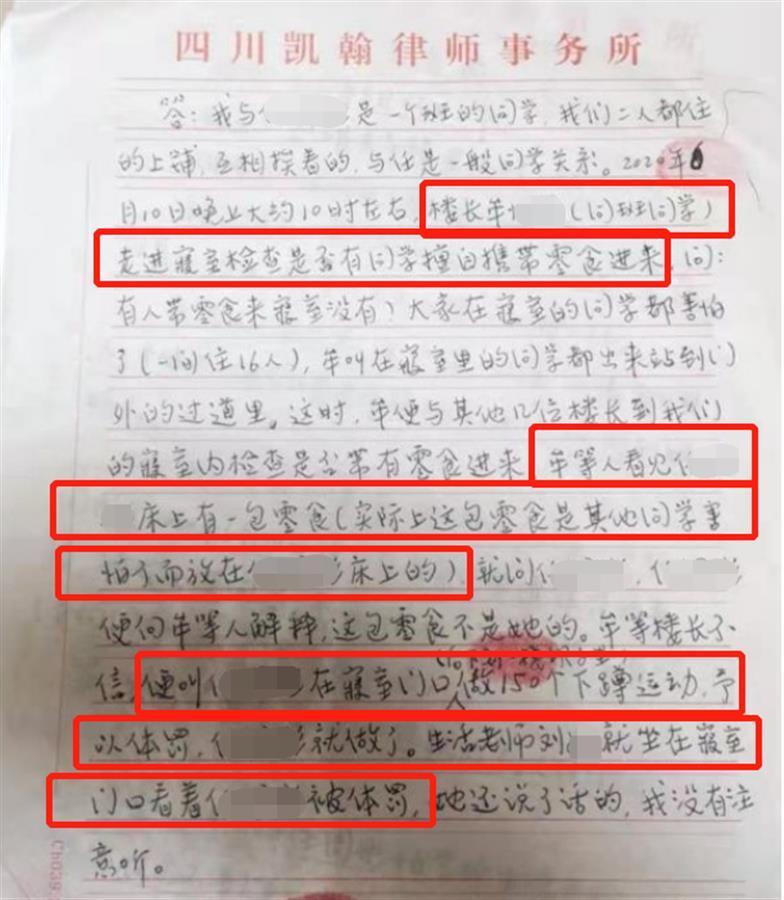 四川凯翰律师事务所
答：我与任 是一个班的同学，我们二人都住
的上铺，互相挨着的，与任是一般同学关系。2020年6
月10日晚上大约10时左右，楼长牟 （同班同学）
走进寝室检查是否有同学擅自携带零食进来，问：
有人带零食来寝室没有？大家在寝室的同学都害怕
了（一间住16人），牟叫在寝室里的同学都出来站到门
外的过道里。这时，牟便与其他几位楼长到我们
的寝室内检查是否带有零食进来，牟等人看见任
床上有一包零食（实际上这包零食是其他同学害
怕了而放在任 床上的），就问任 ，任
便向牟等人解释，这包零食不是她的。牟等楼长不
信，便叫任 在寝室门口做150个下蹲运动，予
以体罚，任 就做了。生活老师刘 就坐在寝室
门口看着任 被体罚，她还说了话的，我没有注
意听。